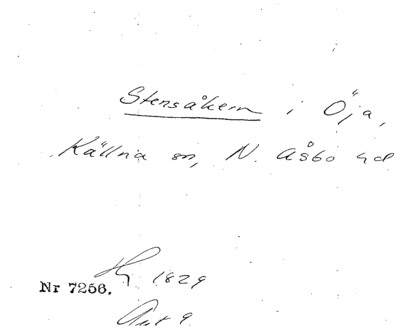 Stensåkern i Öja,
Källna sn, N. Åsbo hd
Hy 1829
Nr 7256.
Akt 9